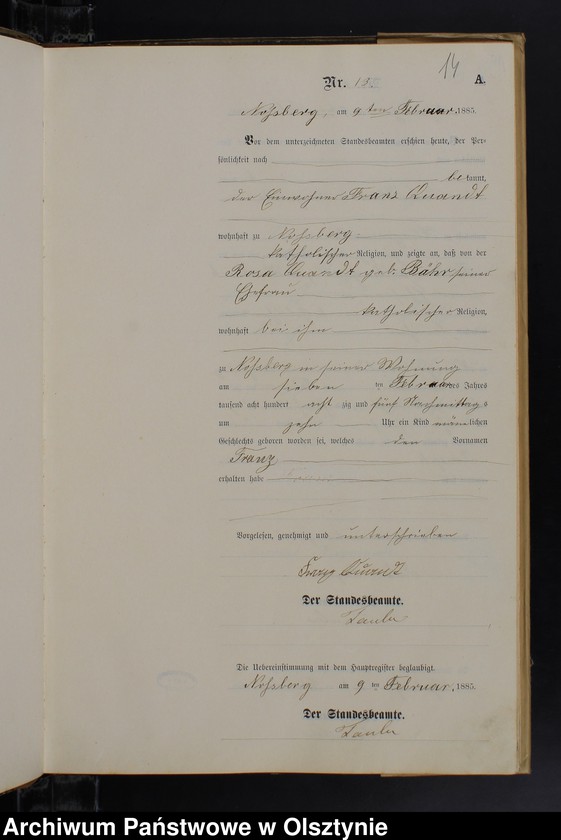 14
Nr. 13. A.
Noßberg, am 9ten Februar 1885.
Vor dem unterzeichneten Standesbeamten erschien heute, der Per-
sönlichkeit nach
be kannt,
der Einwohner Franz Quandt
wohnhaft zu Noßberg
katholischer Religion, und zeigte an, daß von der
Rosa Quandt geb. Bähr seiner
Ehefrau
katholischer Religion,
wohnhaft bei ihm
zu Noßberg in seiner Wohnung
am sieben ten Februar des Jahres
tausend acht hundert acht zig und fünf Nachmittags
um zehn Uhr ein Kind männlichen
Geschlechts geboren worden sei, welches den Vornamen
Franz
erhalten habe
Vorgelesen, genehmigt und unterschrieben
Franz Quandt
Der Standesbeamte.
Die Uebereinstimmung mit dem Hauptregister beglaubigt.
Noßberg am 9 ten Februar 1885.
Der Standesbeamte.
Archiwum Państwowe w Olsztynie